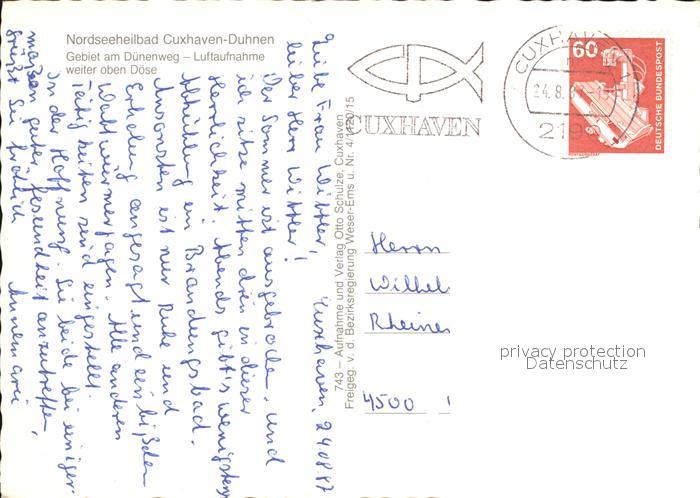 Nordseeheilbad Cuxhaven-Duhnen
Gebiet am Dünenweg – Luftaufnahme
weiter oben Döse
Cuxhaven, 24.08.87
Liebe Frau Wittler,
lieber Herr Wittler!
Der Sommer ist ausgebrochen, und
ich sitze mitten drin in dieser
Herrlichkeit. Abends gibt's wenigstens
Abkühlung im Brandungsbad.
Ansonsten ist nur Ruhe und
Erholung angesagt und ein bißchen
Wattwürmerjagen. Alle anderen
Tätigkeiten sind eingestellt.
In der Hoffnung, Sie beide bei einiger-
maßen guter Gesundheit anzutreffen,
grüßt Sie fröhlich
743 – Aufnahme und Verlag Otto Schulze, Cuxhaven
Freigeg. v. d. Bezirksregierung Weser-Ems u. Nr. 4/4120/15
CUXHAVEN
CUXHAV
24.8.
219
60
DEUTSCHE BUNDESPOST
Herrn
Wilhel
Rheine
4500
privacy protection
Datenschutz